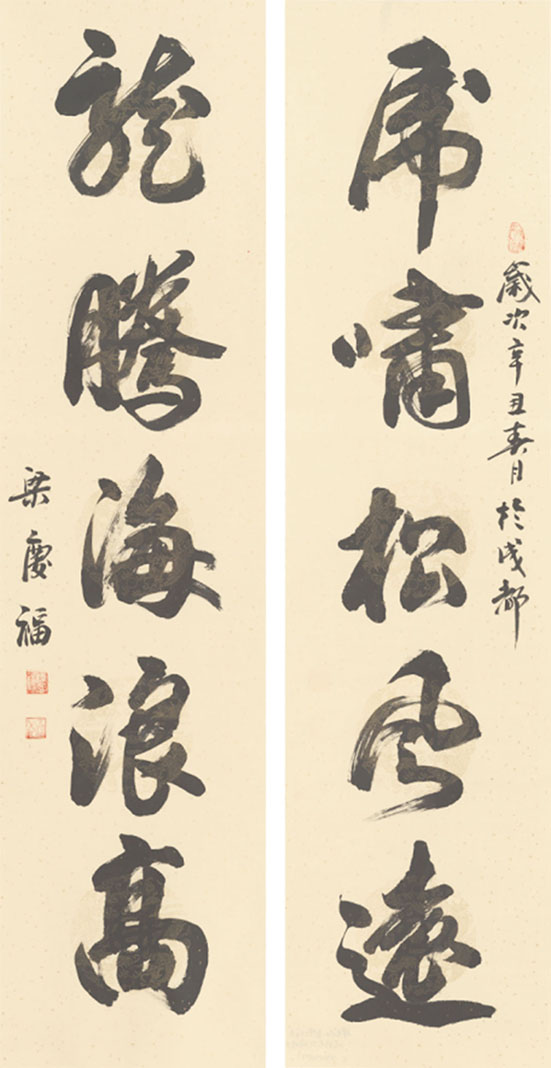 歲次辛丑春月於成都
虎嘯松風遠
龍騰海浪高
梁慶福